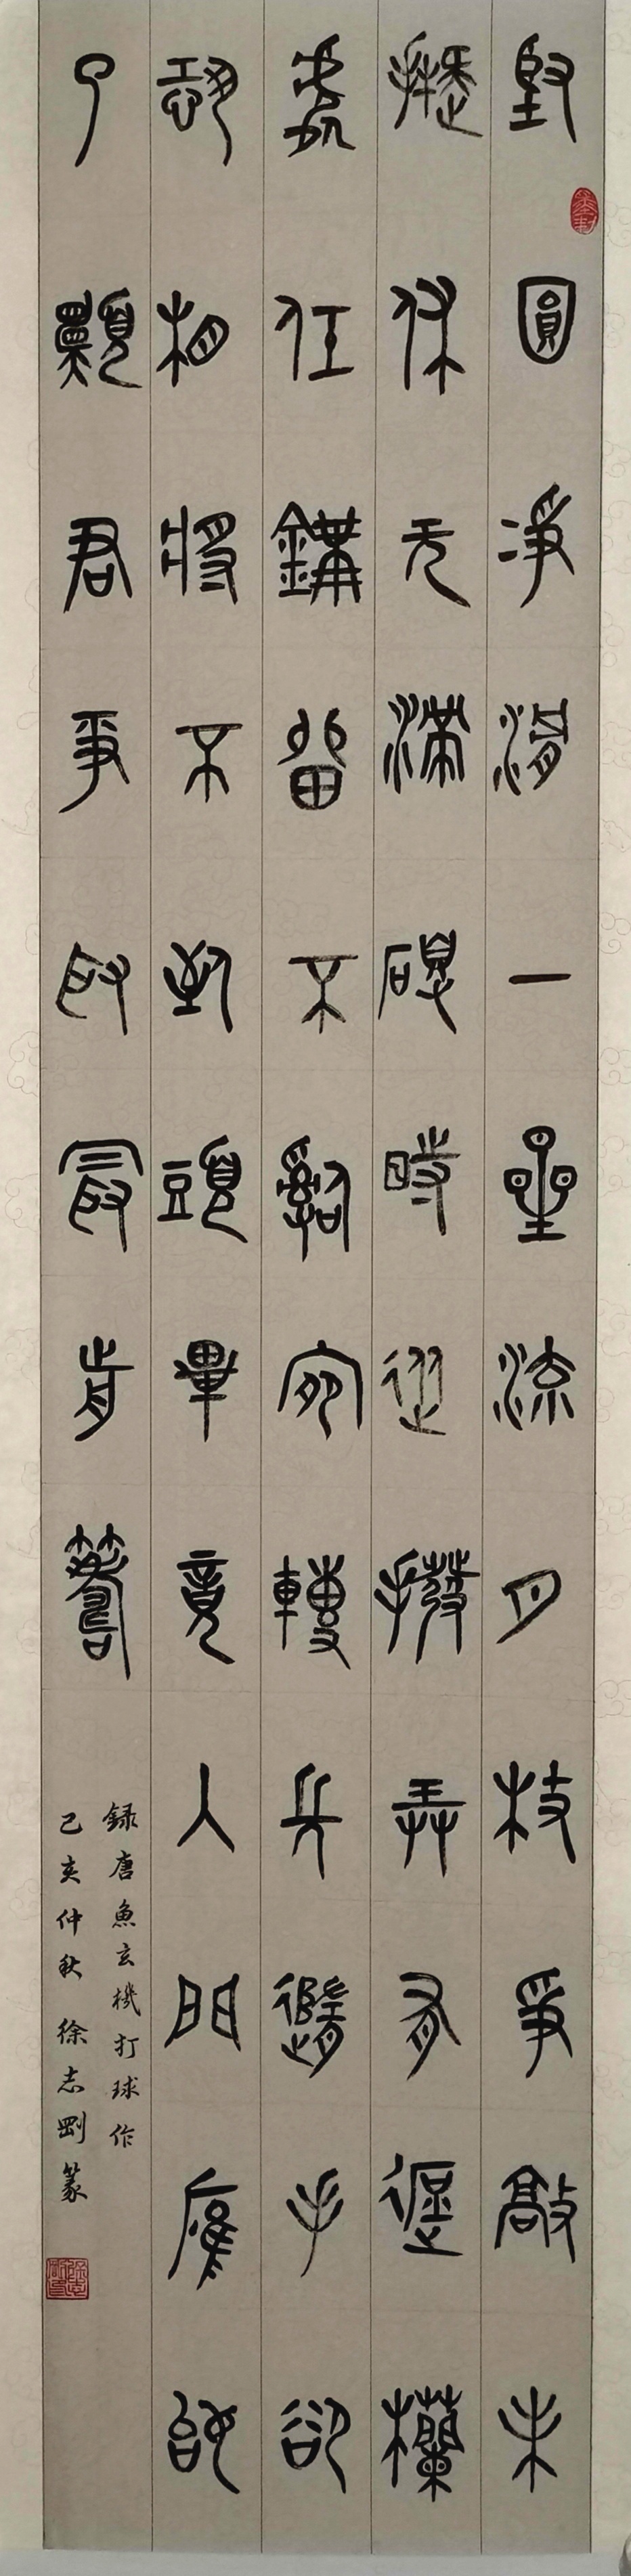 堅圓淨滑一星流月枝爭敲未
擬休无滯礙時從撥弄有遮欄
處任鉤留不辭宛轉長隨手卻
恐相將不到頭畢竟入門應始
了願君爭取最前籌
録唐魚玄機打球作
己亥仲秋 徐志剛篆